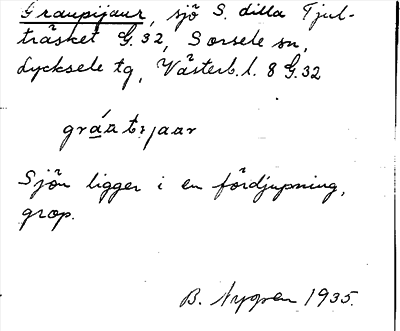 Graupijaur, sjö S. dilla Tjul-
träsket G.32, Sorsele sn,
Lycksele tg, Västerb. l. 8 G.32
gráa tjaar
Sjön ligger i en fördjupning,
grop.
B. Nygren 1935.